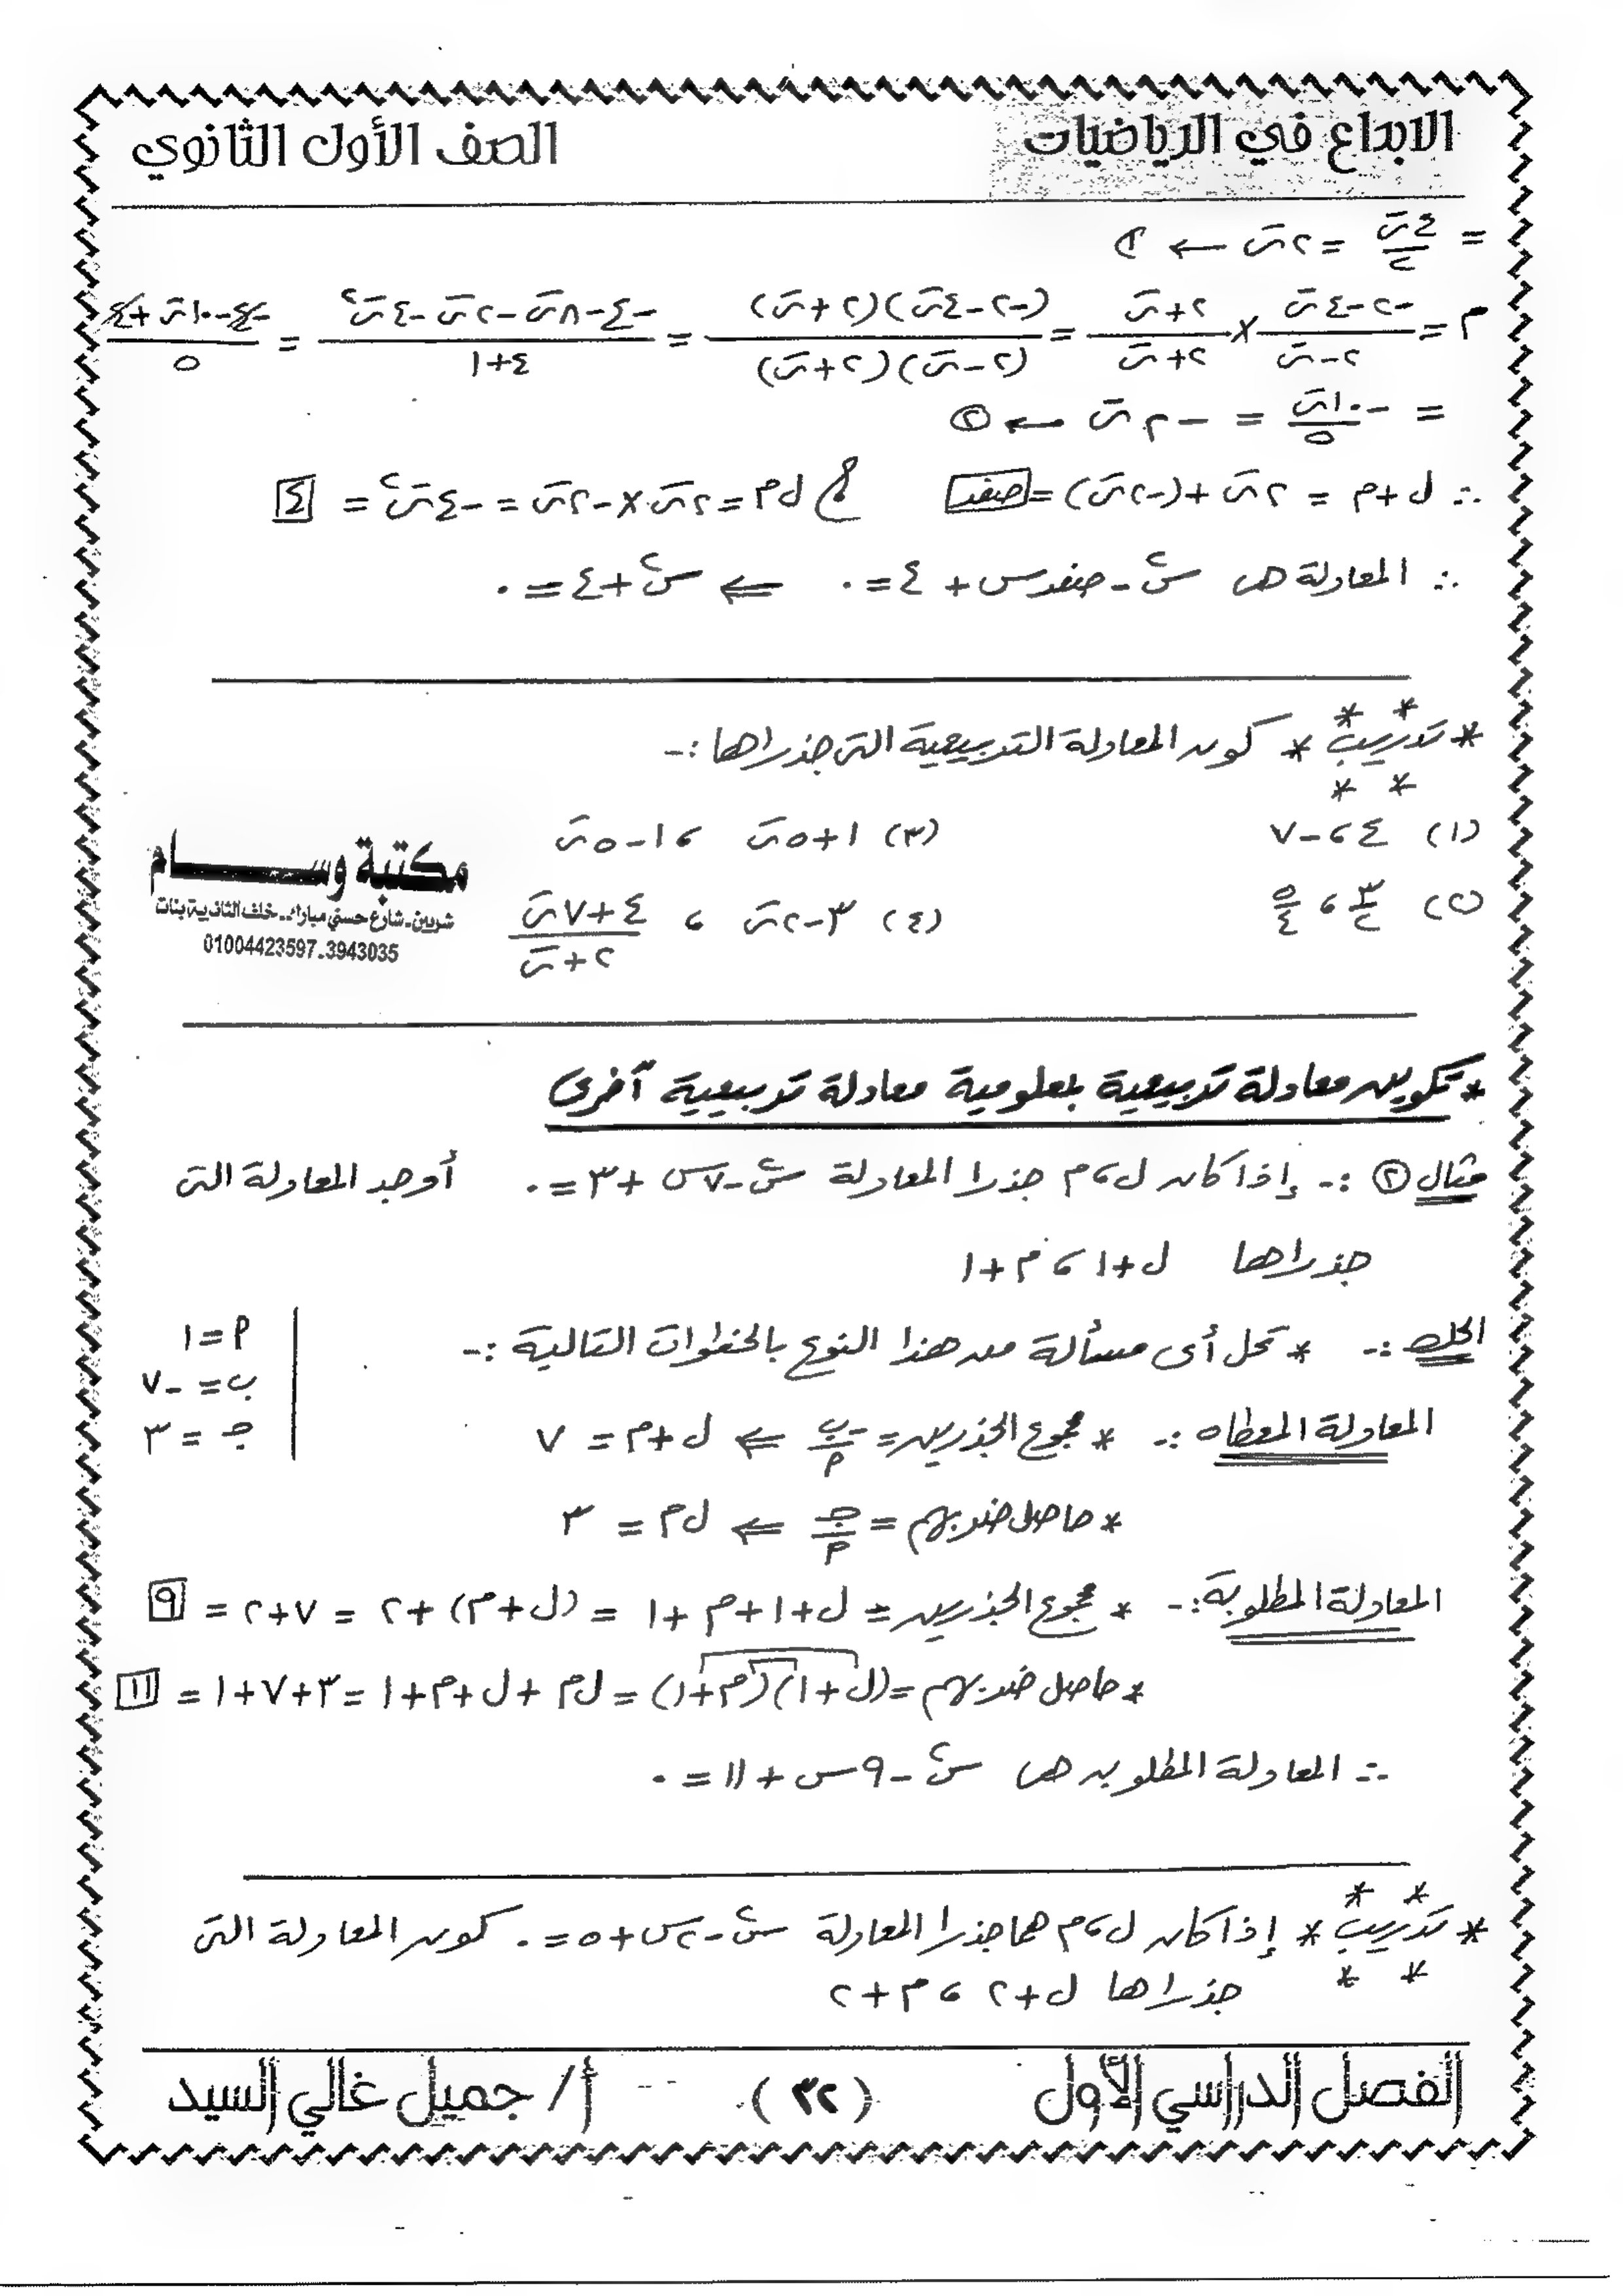 الابداع في الرياضيات
الصف الأول الثانوي
= ٤ت/٢ = ٢ت ← ①
م = (-٢-٤ت)/(٢-ت) × (٢+ت)/(٢+ت) = (-٢-٤ت)(٢+ت)/(٢-ت)(٢+ت) = (-٤-٨ت-٢ت-٤ت²)/(٤+١) = (-٤-١٠ت+٤)/٥
= -١٠ت/٥ = -٢ت ← ②
∴ ل+م = ٢ت+(-٢ت) = صفر ، ل م = ٢ت×-٢ت = -٤ت² = ٤
∴ المعادلة هى س² - صفر س + ٤ = ٠ ⇐ س² + ٤ = ٠
* تدريب * كون المعادلة التربيعية التى جذراها :-
(١) ٤ ، -٧
(٣) ١+٥ت ، ١-٥ت
(٢) ٣/٢ ، ٥/٤
(٤) ٣-٢ت ، (٤+٧ت)/(٢+ت)
مكتبة وســـــام
شربين - شارع حسني مبارك - خلف الثانوية بنات
01004423597-3943035
* تكوين معادلة تربيعية بمعلومية معادلة تربيعية آخرى
مثال ② :- إذا كان ل ، م جذرا المعادلة س² - ٧س + ٣ = ٠ أوجد المعادلة التى
جذراها ل+١ ، م+١
الحل :- * تحل أى مسألة من هذا النوع بالخطوات التالية :-
م = ١
ب = -٧
جـ = ٣
المعادلة المعطاه :- * مجموع الجذرين = -ب/م ⇐ ل+م = ٧
* حاصل ضربهم = جـ/م ⇐ ل م = ٣
المعادلة المطلوبة :- * مجموع الجذرين = ل+١+م+١ = (ل+م)+٢ = ٧+٢ = ٩
* حاصل ضربهم = (ل+١)(م+١) = ل م + ل+م+١ = ٣+٧+١ = ١١
∴ المعادلة المطلوبه هى س² - ٩س + ١١ = ٠
* تدريب * إذا كان ل ، م هما جذرا المعادلة س² - ٢س + ٥ = ٠ كون المعادلة التى
جذراها ل+٢ ، م+٢
الفصل الدراسي الأول
(٣٢)
أ/ جميل غالي السيد